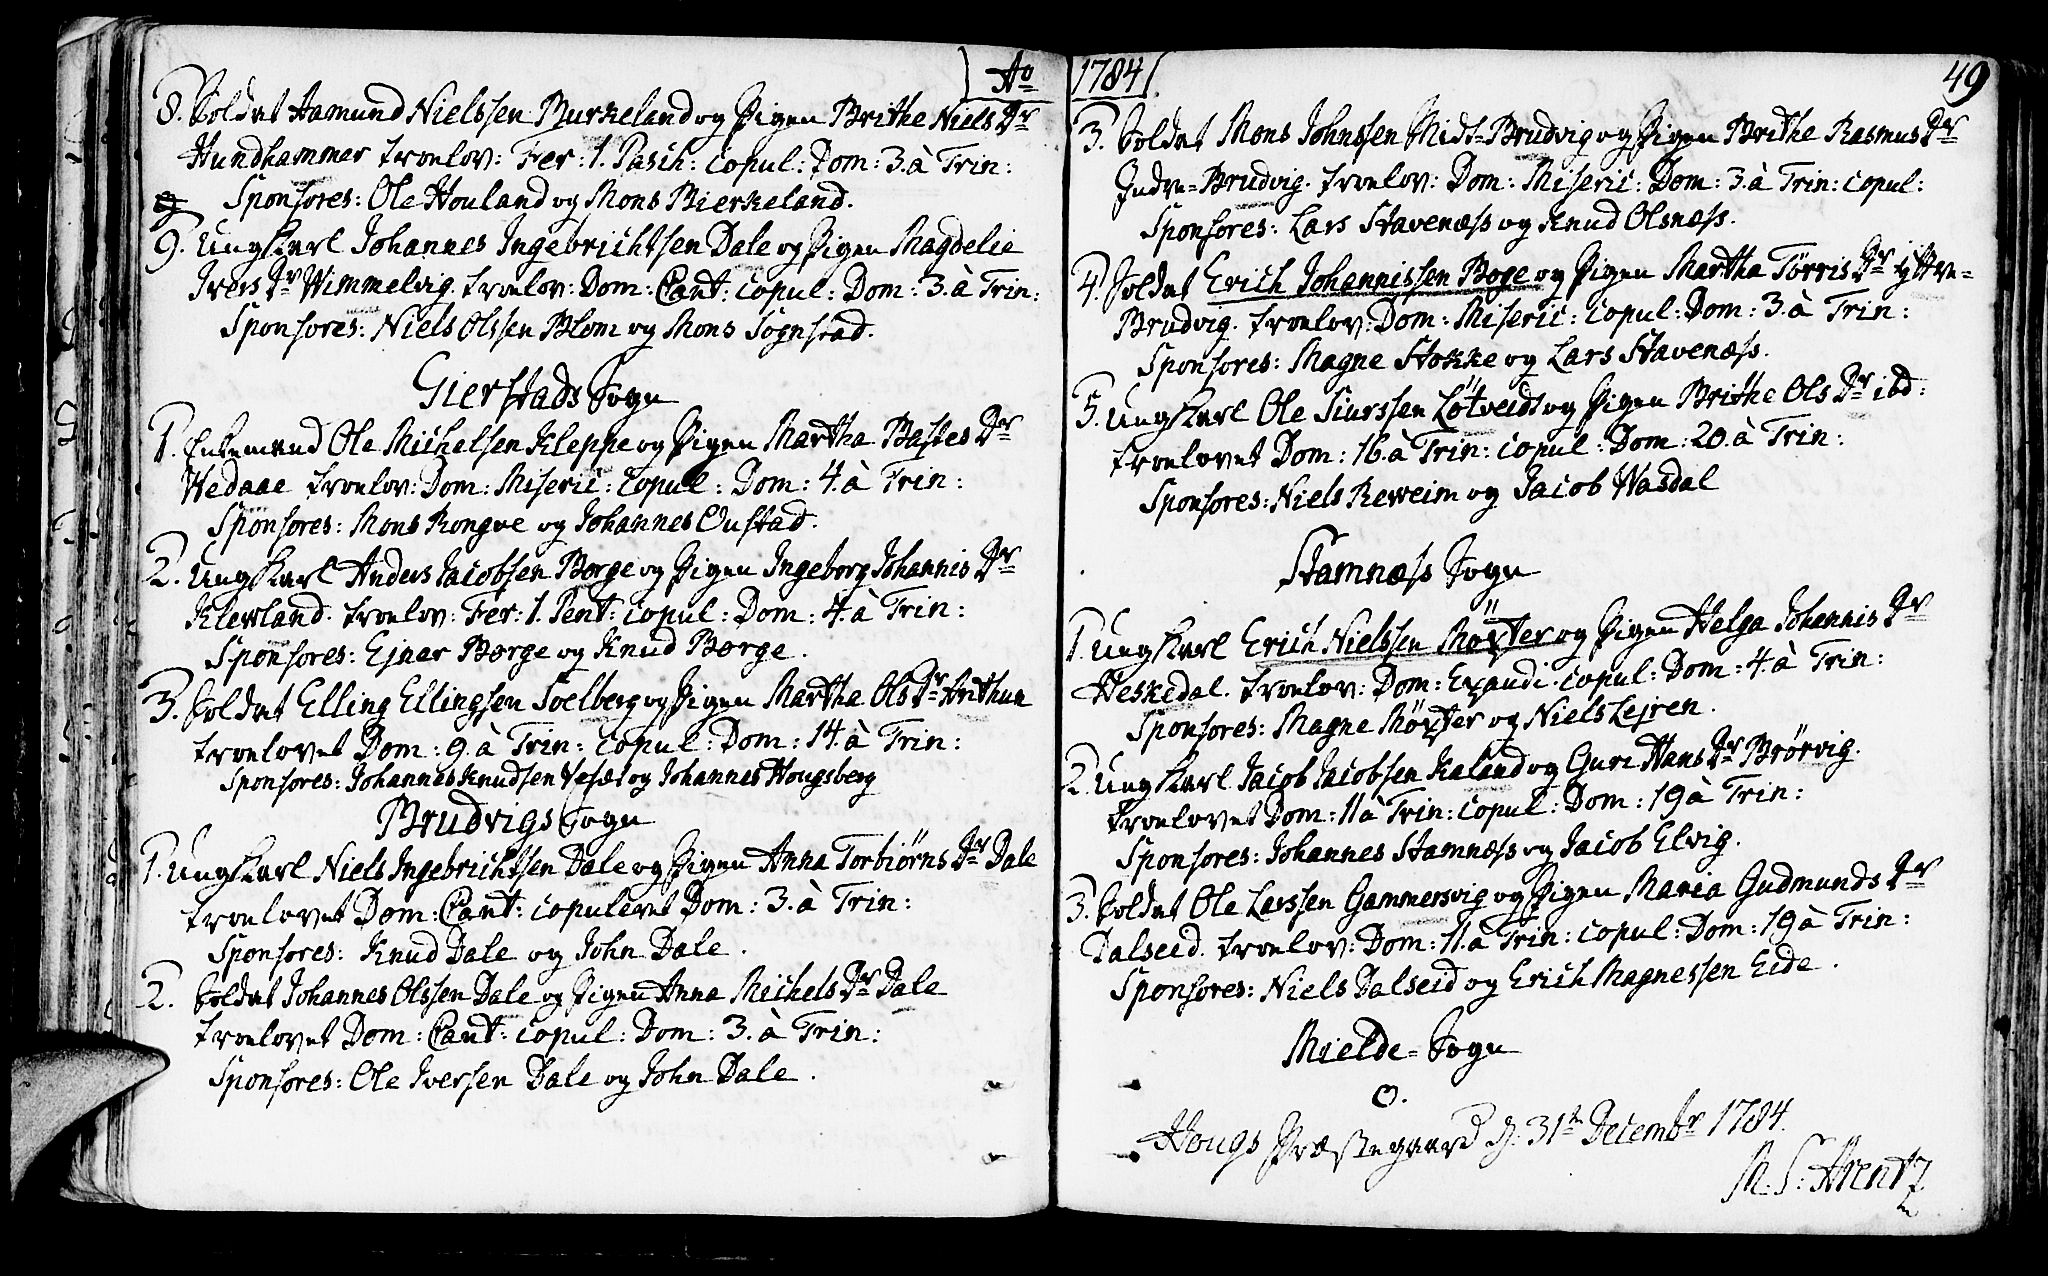 Ao
8. Soldat Aamund Nielssen Burkeland og Pigen Brithe Niels Dr
Hundhammer trolov: Fer: 1. Pasch: copul: Dom: 3. à Trin:
Sponsores: Ole Houland og Mons Bierkeland.
9. Ung Karl Johannes Ingebrichtsen Dale og Pigen Magdelie
Ivers Dr Wimmelvig. trolov: Dom: Cant: copul: Dom: 3. à Trin:
Sponsores: Niels Olssen Blom og Mons Sognstad.
Gierstads Sogn
1. Enkemand Ole Michelsen Kleppe og Pigen Martha Bastes Dr
Wedaae trolov: Dom: Miseric: copul: Dom: 4. à Trin:
Sponsores: Mons Rongve og Johannes Oustad.
2. Ung Karl Anders Jacobsen Borge og Pigen Ingeborg Johannis Dr
Klewland. trolov: Fer: 1. Pent: copul: Dom: 4. à Trin:
Sponsores: Ejnar Borge og Knud Borge.
3. Soldat Elling Ellingsen Soelberg og Pigen Martha Ols Dr Arthun
trolovet Dom: 9. à Trin: copul: Dom: 14. à Trin:
Sponsores: Johannes Knudsen Vesæt og Johannes Hougsberg
Brudvigs Sogn
1. Ung Karl Niels Ingebrichtsen Dale og Pigen Anna Torbiørns Dr Dale
trolovet Dom: Cant: copuleret Dom: 3. à Trin:
Sponsores: Knud Dale og John Dale.
2. Soldat Johannes Olssen Dale og Pigen Anna Michels Dr Dale
trolovet Dom: Cant: copul: Dom: 3. à Trin:
Sponsores: Ole Iversen Dale og John Dale.
1784. 49
3. Soldat Mons Johnssen Midt-Brudvig og Pigen Brithe Rasmus Dr
Indre-Brudvig. trolov: Dom: Miseric: Dom: 3. à Trin: copul:
Sponsores: Lars Stavenæss og Knud Olsnæss.
4. Soldat Erich Johannissen Boge og Pigen Martha Tørris Dr Yttre-
Brudvig. trolov: Dom: Miseric: copul: Dom: 3. à Trin:
Sponsores: Magne Stokke og Lars Stavenæss.
5. Ung Karl Ole Siurssen Løtveidt og Pigen Brithe Ols Dr ibd:
trolovet Dom: 16. à Trin: copul: Dom: 20. à Trin:
Sponsores: Niels Reweim og Jacob Wasdal
Stamnæss Sogn
1. Ung Karl Erich Nielssen Møxter og Pigen Helga Johannis Dr
Heskedal. trolov: Dom: Exaudi. copul: Dom: 4. à Trin:
Sponsores: Magne Møxter og Niels Lejren.
2. Ung Karl Jacob Jacobsen Kaland og Guri Hans Dr Brørvig.
trolovet Dom: 11 à Trin: copul: Dom: 19 à Trin:
Sponsores: Johannes Stamnæss og Jacob Elvig.
3. Soldat Ole Larssen Gammersvig og Pigen Maria Gudmunds Dr
Dalseid. trolov: Dom: 11. à Trin: copul: Dom: 19 à Trin:
Sponsores: Niels Dalseid og Erich Magnessen Eide.
Mielde-Sogn
O.
Hougs Præstegaard d. 31te Decembr 1784.
M. S: Arentz